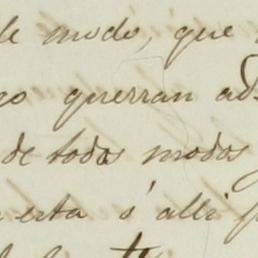 de modo, que
querran ad
de todos modos
esta s' alli